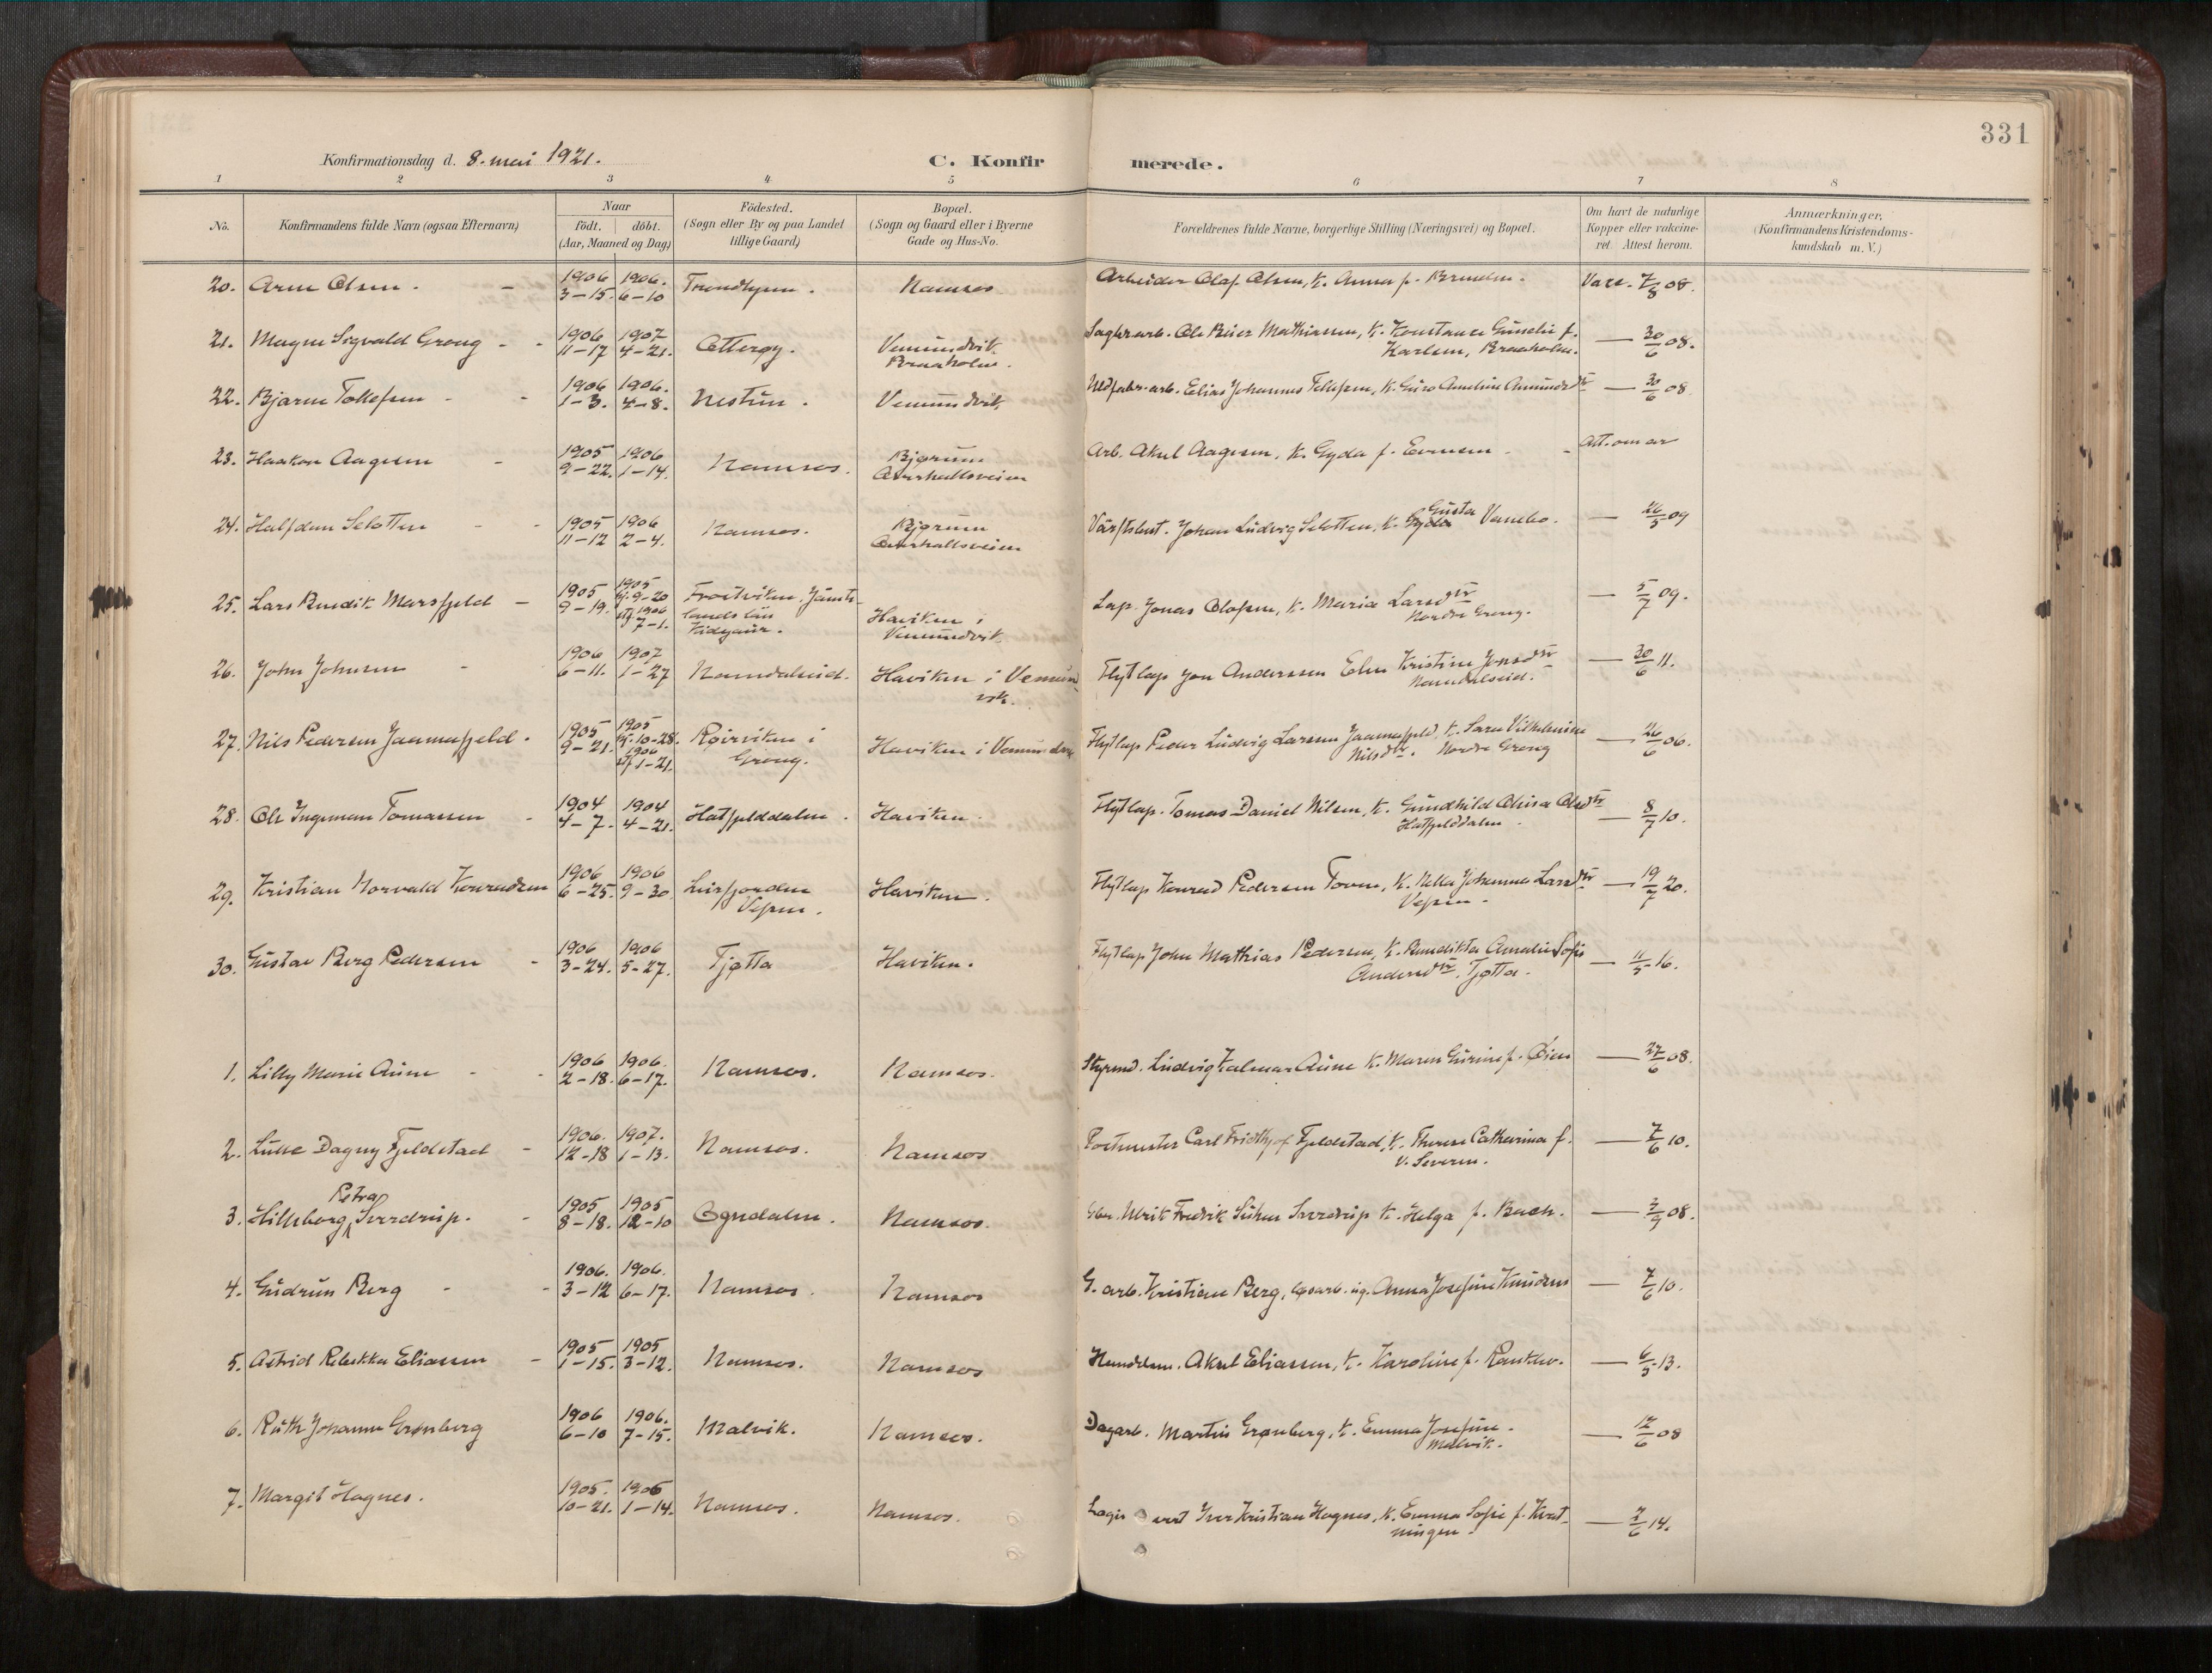 331
Konfirmationsdag d. 8. mai 1921.
C. Konfir merede.
1 2 3 4 5 6 7 8
No. Konfirmandens fulde Navn (ogsaa Efternavn) Naar födt. döbt. (Aar, Maaned og Dag) Födested. (Sogn eller By og paa Landet tillige Gaard) Bopæl. (Sogn og Gaard eller i Byerne Gade og Hus-No. Forældrenes fulde Navne, borgerlige Stilling (Næringsvei) og Bopæl. Om havt de naturlige Kopper eller vakcineret. Attest herom. Anmærkninger. (Konfirmandens Kristendomskundskab m. V.)
20. Arne Olsen. - 1906 3-15. 1906. 6-10 Trondhjem. Namsos. Arbeider Olaf Olsen, K. Anna f. Vacc. 7/8 08.
21. Magne Sigvald Grong - - 1906 11-17 1907 4-21. Otterøy. Vemundvik. Braaholm. Sagbr.arb. Ole Peter Mathiassen, K. Konstance f. Karlsen, Braaholm. — 30/6 08.
22. Bjarne Tollefsen - - 1906 1-3. 1906. 4-8. Nestun. Vemundvik Uldfabr.arb. Elias Johannes Tollefsen, K. Guro Ameline Amundsdtr — 30/6 08
23. Haakon Aagesen - 1905 9-22. 1906 1-14. Namsos. Bjørum Overhallsveien Arb. Aksel Aagesen, K. Gyda f. Evensen - - Att. om ar
24. Halfdan Seletten - - 1905 11-12 1906 2-4. Namsos. Bjørum Overhallsveien Johan Ludvig Seletten, K. Gyda Gusta Vanebo. — 26/5 09
25. Lars Bendik Marsfjeld - 1905 9-19. 1905 hj. 9-20 stf 1906 7-1. Frostviken, Jämtlands län Haviken i Vemundvik Lap. Jonas Olofsen, K. Maria Larsdtr Nordre Grong. — 5/7 09.
26. John Johnsen - 1906 6-11. 1907 1-27 Namdalseid. Haviken i Vemundvik. Flytlap Jon Anderssen Elen Kristine Jonsdtr Namdalseid. — 30/6 11.
27. Nils Pedersen Jaamafjeld. 1905 9-21. 1905 hj. 10-28. 1906 stf 1-21. Røirviken i Grong. Haviken i Vemundvik Flytlap Peder Ludvig Larsen Jaamafjeld, K. Sara Vilhelmine Nilsdtr. Nordre Grong — 26/6 06.
28. Ole Ingeman Tomassen - 1904 4-7. 1904 4-21. Hatfjelddalen. Haviken. Flytlap. Tomas Daniel Nilsen, K. Gundhild Olsdtr Hatfjelddalen. — 8/7 10.
29. Kristian Norvald Konradsen 1906 6-25. 1906 9-30. Leirfjorden Vefsen. Haviken. Flytlap Konrad Pedersen Toven, K. Nella Johanna Larsdtr Vefsen. — 19/7 20.
30. Gustav Berg Pedersen - 1906 3-24. 1906 5-27. Tjøtta Haviken. Flytlap John Mathias Pedersen, K. Bendikta Amalie Sofie Andersdtr, Tjøtta. — 11/5 16.
1. Lilly Marie Aune - - 1906 2-18. 1906. 6-17. Namsos. Namsos. Styrmd. Ludvig Halmar Aune K. Maren Gurine f. Øien — 27/6 08.
2. Lulle Dagny Fjeldstad - 1906. 12-18 1907. 1-13. Namsos. Namsos Postmester Carl Fridthjof Fjeldstad, K. Therese Catharina f. v. Severen. — 7/6 10.
3. Hilleborg Petra Sverdrup. - 1905 8-18. 1905 12-10 Ogndalen. Namsos. Ulrik Fredrik Suhm Sverdrup K. Helga f. Bach. — 3/9 08.
4. Gudrun Berg - - 1906. 3-12 1906. 6-17. Namsos. Namsos G. arb. Kristian Berg, løsarb. ug. Anna Josefine Knudsen — 7/6 10.
5. Astrid Rebekka Eliassen - 1905 1-15. 1905 3-12. Namsos. Namsos Handelsm. Aksel Eliassen, K. Karoline f. — 6/5 13.
6. Ruth Johanne Grønberg 1906 6-10 1906. 7-15. Malvik. Namsos. Dagarb. Martin Grønberg, K. Emma Josefine. Malvik. — 12/6 08
7. Margit Hognes. 1905. 10-21. 1906 1-14. Namsos. Namsos. Logisvert Iver Kristian Hognes, K. Emma Sofie f. Kvatningen — 7/6 14.